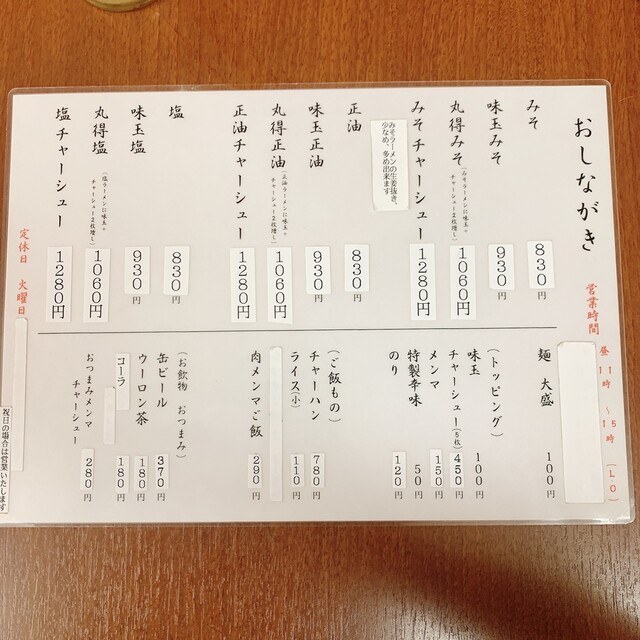 おしながき
営業時間 昼 11時〜15時(L.O)
みそ 830円
味玉みそ 930円
丸得みそ(みそラーメンに味玉+チャーシュー2枚増し) 1060円
みそチャーシュー 1280円
みそラーメンの生姜抜き、
少なめ、多め出来ます
正油 830円
味玉正油 930円
丸得正油(正油ラーメンに味玉+チャーシュー2枚増し) 1060円
正油チャーシュー 1280円
塩 830円
味玉塩 930円
丸得塩(塩ラーメンに味玉+チャーシュー2枚増し) 1060円
塩チャーシュー 1280円
定休日 火曜日
麺 大盛 100円
(トッピング)
味玉 100円
チャーシュー(5枚) 450円
メンマ 150円
特製辛味 50円
のり 120円
(ご飯もの)
チャーハン 780円
ライス(小) 110円
肉メンマご飯 290円
(お飲物 おつまみ)
缶ビール 370円
ウーロン茶 180円
コーラ 180円
おつまみメンマ
チャーシュー 280円
祝日の場合は営業いたします